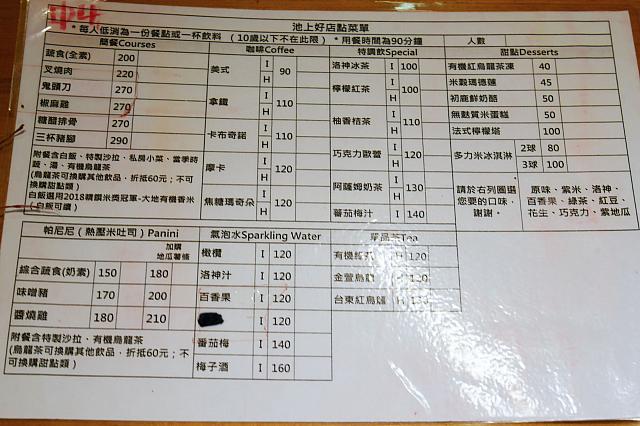 池上好店點菜單
* 每人低消為一份餐點或一杯飲料 （10歲以下不在此限）* 用餐時間為90分鐘 人數
簡餐Courses
蔬食(全素) 200
叉燒肉 220
鬼頭刀 270
椒麻雞 270
糖醋排骨 270
三杯豬腳 290
附餐含白飯、特製沙拉、私房小菜、當季時蔬、湯、有機烏龍茶
(烏龍茶可換購其他飲品，折抵60元；不可換購甜點類)
白飯選用2018精饌米獎冠軍-大地有機香米
(白飯可續)
咖啡Coffee
美式 I H 90
拿鐵 I H 110
卡布奇諾 I H 110
摩卡 I H 120
焦糖瑪奇朵 I H 120
特調飲Special
洛神冰茶 I 100
檸檬紅茶 I H 100
柚香桔茶 I H 110
巧克力歐蕾 I H 120
阿薩姆奶茶 I H 130
蕃茄梅汁 I 140
甜點Desserts
有機紅烏龍茶凍 40
米穀瑪德蓮 45
初鹿鮮奶酪 50
無麩質米蛋糕 50
法式檸檬塔 100
多力米冰淇淋 2球 80
3球 100
請於右列圈選您要的口味，謝謝。
原味、紫米、洛神、百香果、綠茶、紅豆、花生、巧克力、紫地瓜
帕尼尼（熱壓米吐司）Panini
加購
地瓜薯條
綜合蔬食(奶素) 150 180
味噌豬 170 200
醬燒雞 180 210
附餐含特製沙拉、有機烏龍茶
(烏龍茶可換購其他飲品，折抵60元；不可換購甜點類)
氣泡水Sparkling Water
橄欖 I 120
洛神汁 I 120
百香果 I 120
I 120
蕃茄梅 I 140
梅子酒 I 160
單品茶Tea
有機 H 120
金萱烏龍 H 120
台東紅烏龍 H